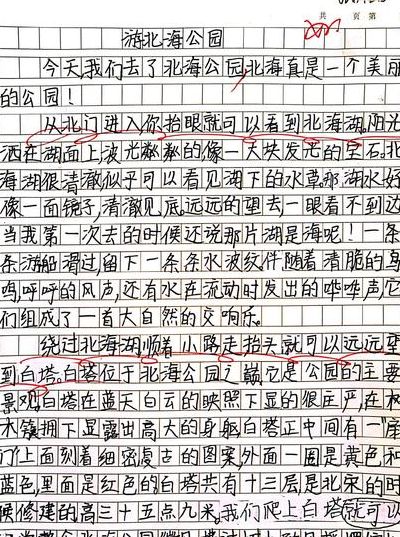 共 页 第
游北海公园
今天,我们去了北海公园,北海真是一个美丽
的公园!
从北门进入,你抬眼就可以看到北海湖,阳光
洒在湖面上波光粼粼的像一大块发光的宝石,北
海湖很清澈似乎可以看见湖下的水草,那湖水好
像一面镜子,清澈见底,远远的望去,一眼看不到边
当我第一次去的时候还说那片湖是海呢!一条
条游船滑过,留下一条条水波纹,伴随着清脆的鸟
鸣,呼呼的风声,还有水在流动时发出的哗哗声,它
们组成了一首大自然的交响乐。
绕过北海湖顺着小路走抬头就可以远远望
到白塔,白塔位于北海公园之巅,它是公园的主要
景观,白塔在蓝天白云的映照下显的很庄严,在树
木簇拥下显露出高大的身躯,白塔正中间有一扇
门上面刻着细密复古的图案,外面一圈是黄色和
蓝色,里面是红色的,白塔共有十三层,是北宋的时
候修建的高三十五点九米。我们爬上白塔就可以